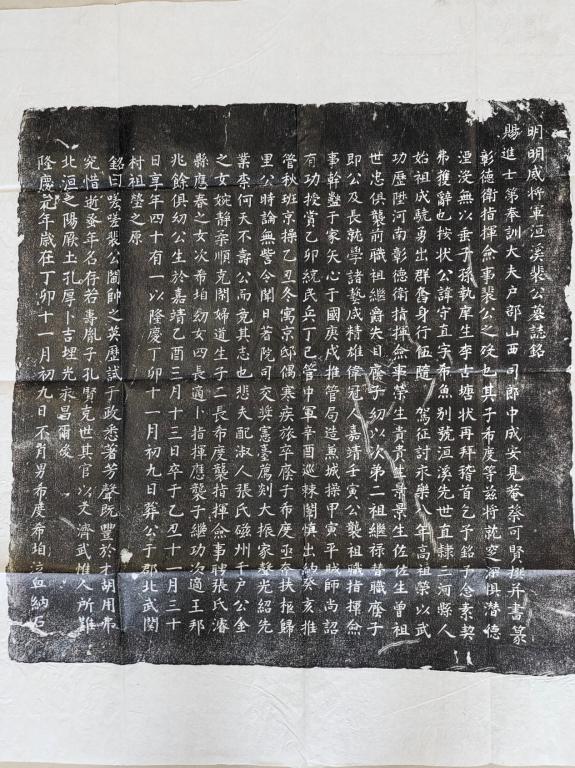 明明威将軍洹溪裴公墓誌銘
賜進士第奉訓大夫户部山西司郎中成安見菴蔡可賢撰并書篆
彰德衛指揮僉事裴公之歿也其子希度等兹将就窆深惧潜德
湮没無以垂子孫執庠生李古塘状再拜稽首乞予銘予念素契
弗獲辭也按状公諱守直字希魚别號洹溪先世直隸三河縣人
始祖成驍勇出群奮身行伍隨 駕征討永樂八年高祖榮以武
功歷陞河南彰德衛指揮僉事榮生貴貴生景景生佐佐生曾祖
世忠俱襲前職祖繼爵失目廕子幼以次弟二祖繼禄替職廕子
即公及長就學諸藝咸精雄偉冠人嘉靖壬寅公襲祖職指揮僉
事幹蠱于家矢心于國庚戌推管局造魚城操甲寅平賊師尚詔
有功授賞乙卯統民兵丁巳管中軍辛酉巡辣閘慎出納癸亥推
管秋班京操乙丑冬寓京邸偶寒疾旅卒廕子希度亟奔扶柩歸
里公時論無訾令聞日著院司交奬憲臺薦剡大振家聲光紹先
業柰何天不壽公而竟其志也悲夫配淑人張氏磁州千户公金
之女婉静柔順克閑婦道生子二長希度襲指揮僉事聘張氏濬
縣應春之女次希珀幼女四長適卜指揮應襲子繼功次適王邦
兆餘俱幼公生於嘉靖乙酉三月十三日卒于乙丑十一月三十
日享年四十有一以隆慶丁卯十一月初九日葬公于郡北武閔
村祖塋之原
銘曰嗟嗟裴公閫帥之英歷試于政悉著芳聲既豐於才胡用弗
究惜逝蚤年名存若壽胤子孔賢克世其官以文濟武惟人所難
北洹之陽厥土孔厚卜吉埋光永昌爾後
隆慶元年歲在丁卯十一月初九日不肖男希度希珀泣血納石